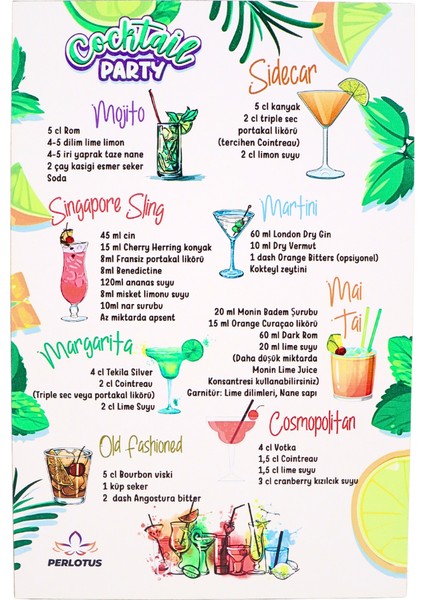 Cocktail
PARTY
Mojito
5 cl Rom
4-5 dilim lime limon
4-5 iri yaprak taze nane
2 çay kasigi esmer seker
Soda
Sidecar
5 cl kanyak
2 cl triple sec
portakal likörü
(tercihen Cointreau)
2 cl limon suyu
Singapore Sling
45 ml cin
15 ml Cherry Herring konyak
8ml Fransiz portakal likörü
8ml Benedictine
120ml ananas suyu
8ml misket limonu suyu
10ml nar surubu
Az miktarda apsent
Martini
60 ml London Dry Gin
10 ml Dry Vermut
1 dash Orange Bitters (opsiyonel)
Kokteyl zeytini
Mai
Tai
20 ml Monin Badem Şurubu
15 ml Orange Curaçao likörü
60 ml Dark Rom
20 ml lime suyu
(Daha düşük miktarda
Monin Lime Juice
Konsantresi kullanabilirsiniz)
Garnitür: Lime dilimleri, Nane sapı
Margarita
4 cl Tekila Silver
2 cl Cointreau
(Triple sec veya portakal likörü)
2 cl Lime Suyu
Old Fashioned
5 cl Bourbon viski
1 küp seker
2 dash Angostura bitter
Cosmopolitan
4 cl Votka
1,5 cl Cointreau
1,5 cl lime suyu
3 cl cranberry kızılcık suyu
PERLOTUS